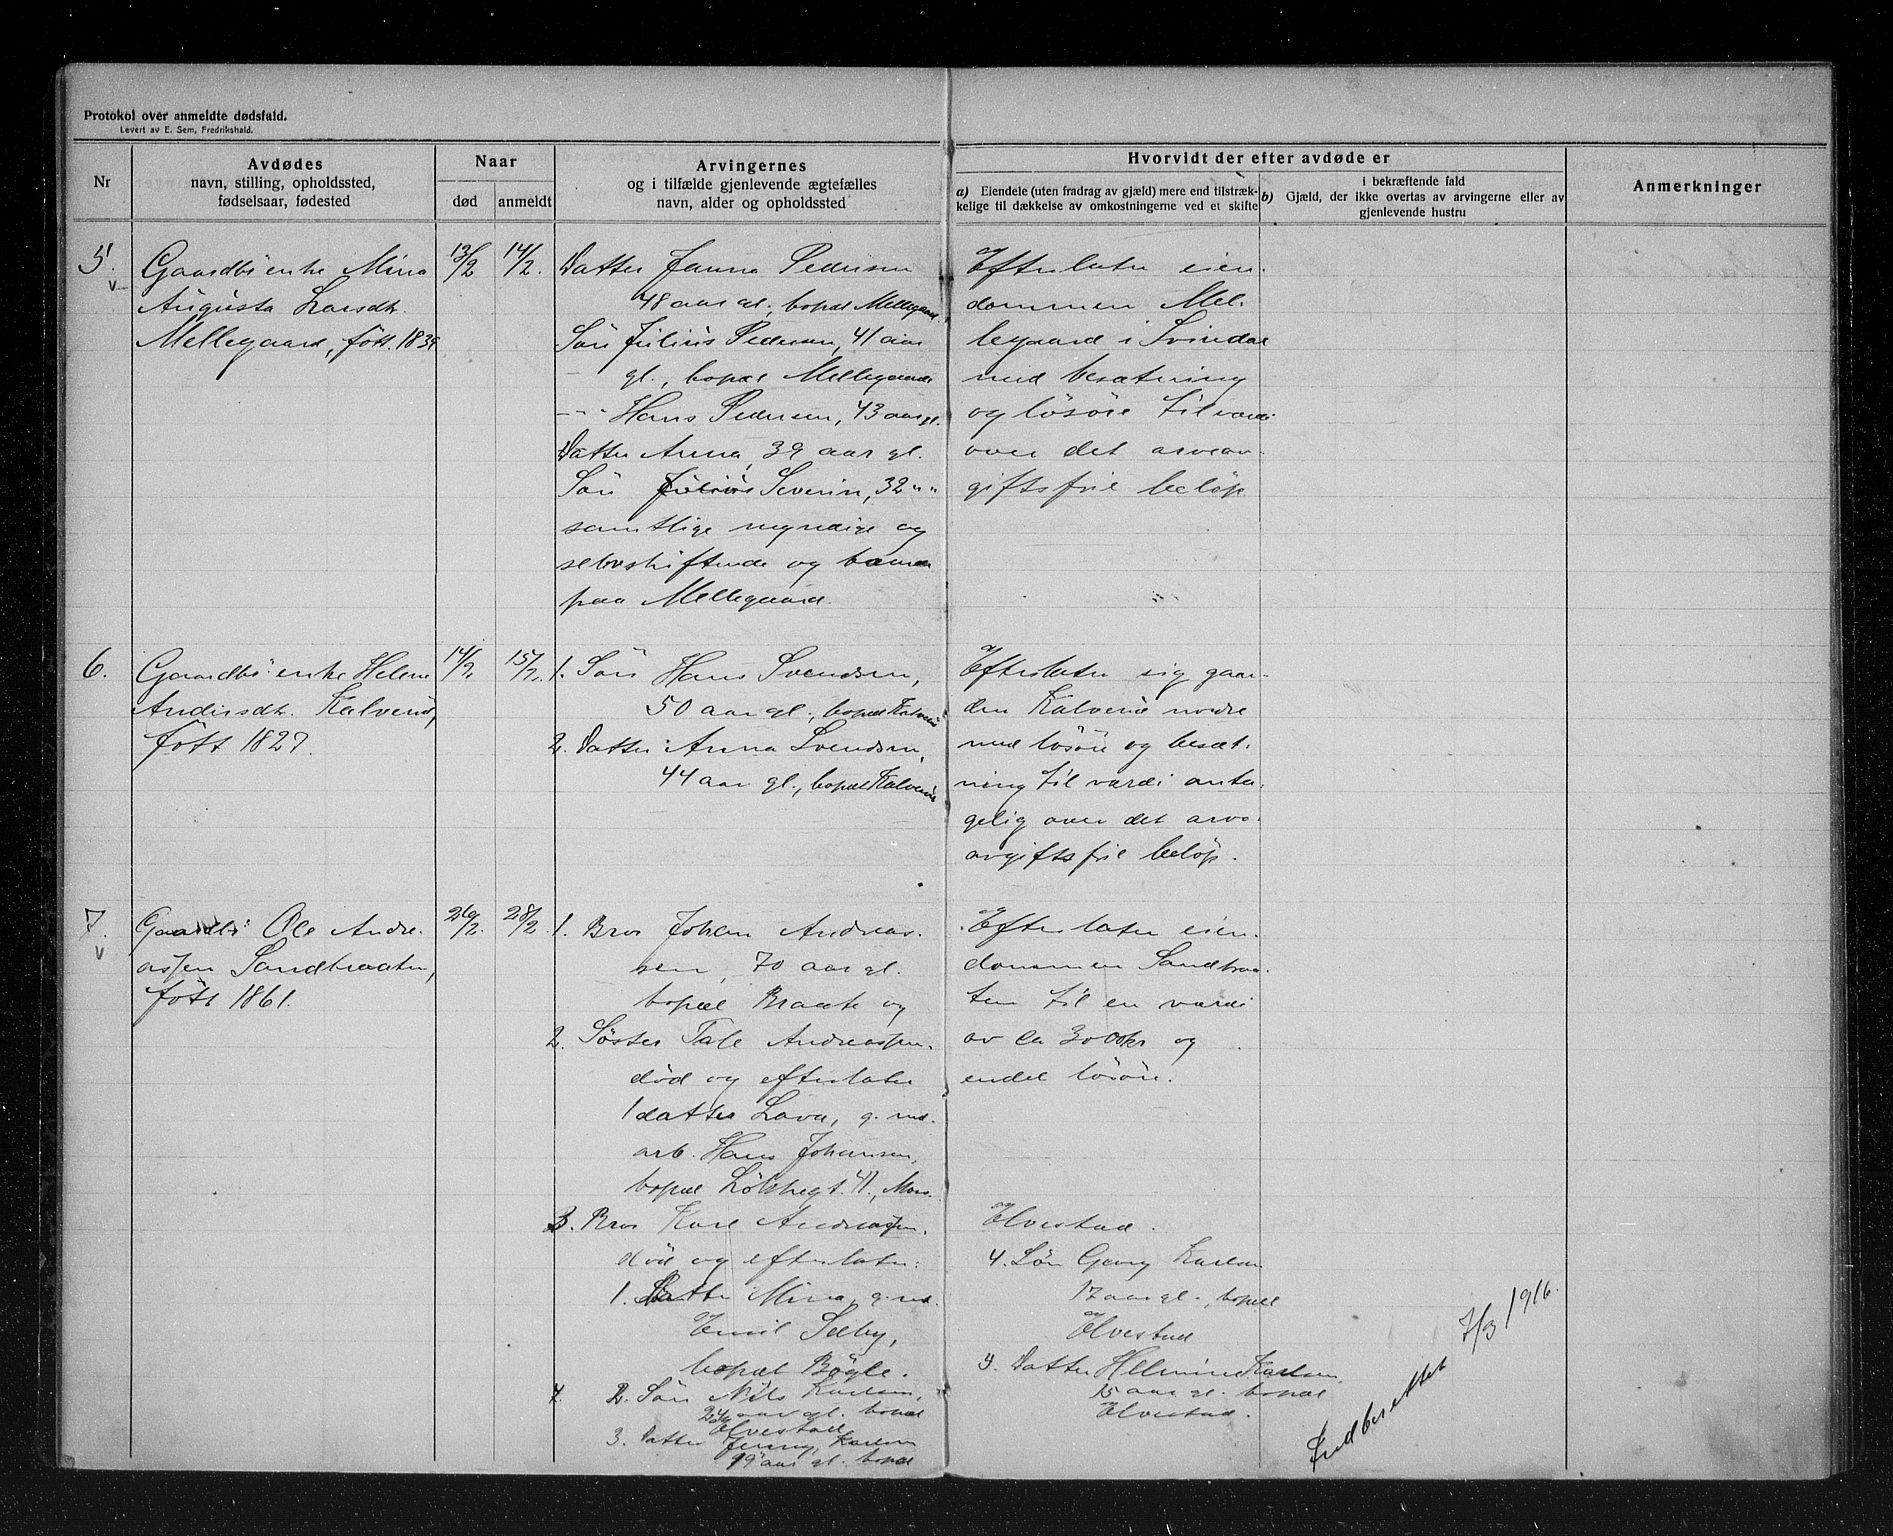 Protokol over anmeldte dødsfald.
Levert av E. Sem, Fredrikshald.
Nr
Avdødes
navn, stilling, opholdssted,
fødselsaar, fødested
Naar
død
anmeldt
Arvingernes
og i tilfælde gjenlevende ægtefælles
navn, alder og opholdssted
Hvorvidt der efter avdøde er
a) Eiendele (uten fradrag av gjæld) mere end tilstræk-
kelige til dækkelse av omkostningerne ved et skifte
i bekræftende fald
b) Gjæld, der ikke overtas av arvingerne eller av
gjenlevende hustru
Anmerkninger
5.
Gaardbr enke Mina
Augusta Larsdtr.
Mellegaard, født 1834
13/2
14/2.
Datter Janna Pedersen
48 aar gl., bopæl Mellegaard.
Søn Julius Pedersen, 41 aar
gl., bopæl Mellegaard
- - - Hans Pedersen, 43 aar gl.
Datter Anna, 39 aar gl.
Søn Severin, 32 " "
samtlige myndige og
selvskiftende og boende
paa Mellegaard.
Efterlater eien-
dommen Mel-
legaard i Svindal
med besætning
og løsøre til værdi
over det arveav-
giftsfrie beløp
6.
Gaardbr enke Helene
Andersdtr. Kalverud,
født 1827.
14/2
15/2.
1. Søn Hans Svendsen,
50 aar gl., bopæl Kalverud
2. Datter Anna Svendsen,
44 aar gl., bopæl Kalverud
Efterlater sig gaar-
den Kalverud nordre
med løsøre og besæt-
ning til værdi anta-
gelig over det arve-
avgiftsfrie beløp.
7.
Gaardbr Ole Andre-
assen Sandbraaten,
født 1861.
26/2.
28/2.
1. Bror Johan Andreas-
sen, 70 aar gl.
bopæl Braate og
2. Søster Tale Andreassen.
død og efterlater
1 datter Lova, g. med
arb. Hans Johansen,
bopæl 41, Moss.
3. Bror Karl Andreassen.
død og efterlater:
1. Datter Mina, g. med
Emil Sæby,
bopæl Bøgle.
2. Søn Nils Karlsen,
24 aar gl. bopæl
Elvestad
3. Datter Jenny Karlsen
19 aar gl. bopæl
Efterlater eien-
dommen Sandbraa-
ten til en værdi
av ca 3000 kr og
endel løsøre.
Elvestad.
4. Søn Georg Karlsen
17 aar gl., bopæl
Elvestad
Datter Helmine Karlsen,
15 aar gl. bopæl
Elvestad.
Indberettet 7/3 1916.